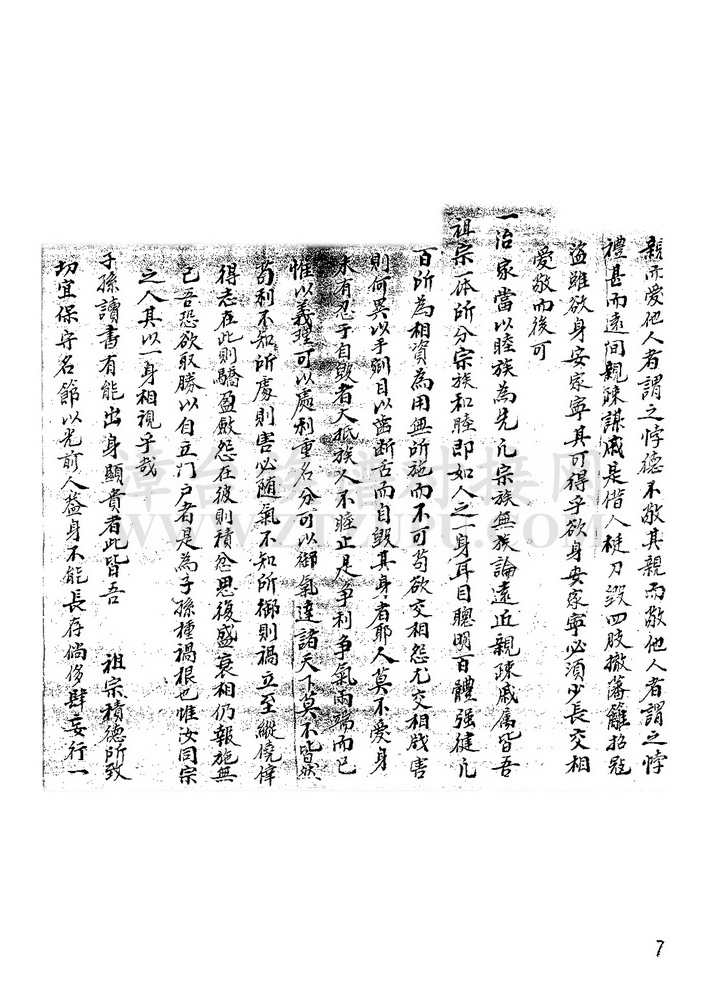 親而愛他人者謂之悖德不敬其親而敬他人者謂之悖
禮甚而遠間親疎謀戚是借人梃刀毀四肢撤藩籬招寇
盜雖欲身安家寧其可得乎欲身安家寧必須少長交相
愛敬而後可
一治家當以睦族為先凡宗族無族論遠近親疎戚属皆吾
祖宗一体所分宗族和睦即如人之一身耳目聰明百體强健凡
百所為相資為用無所施而不可苟欲交相怨尤交相戕害
則何異以手刺目以齒斷舌而自毀其身者耶人莫不愛身
未有忍于自毀者夫抵族人不睦止是争利争氣兩端而已
惟以義理可以處利重名分可以御氣達諸天下莫不皆然
苟利不知所處則害必随氣不知所御則禍立至縱僥倖
得志在此則驕盈斂怨在彼則積忿思復盛衰相仍報施無
已吾恐欲取勝以自立门户者是為子孫種禍根也惟汝同宗
之人其以一身相視乎哉
子孫讀書有能出身顯貴者此皆吾 祖宗積德所致
切宜保守名節以光前人益身不能長存倘侈肆妄行一
潭台族譜对接网
WWW.ZTZUPU.COM
7